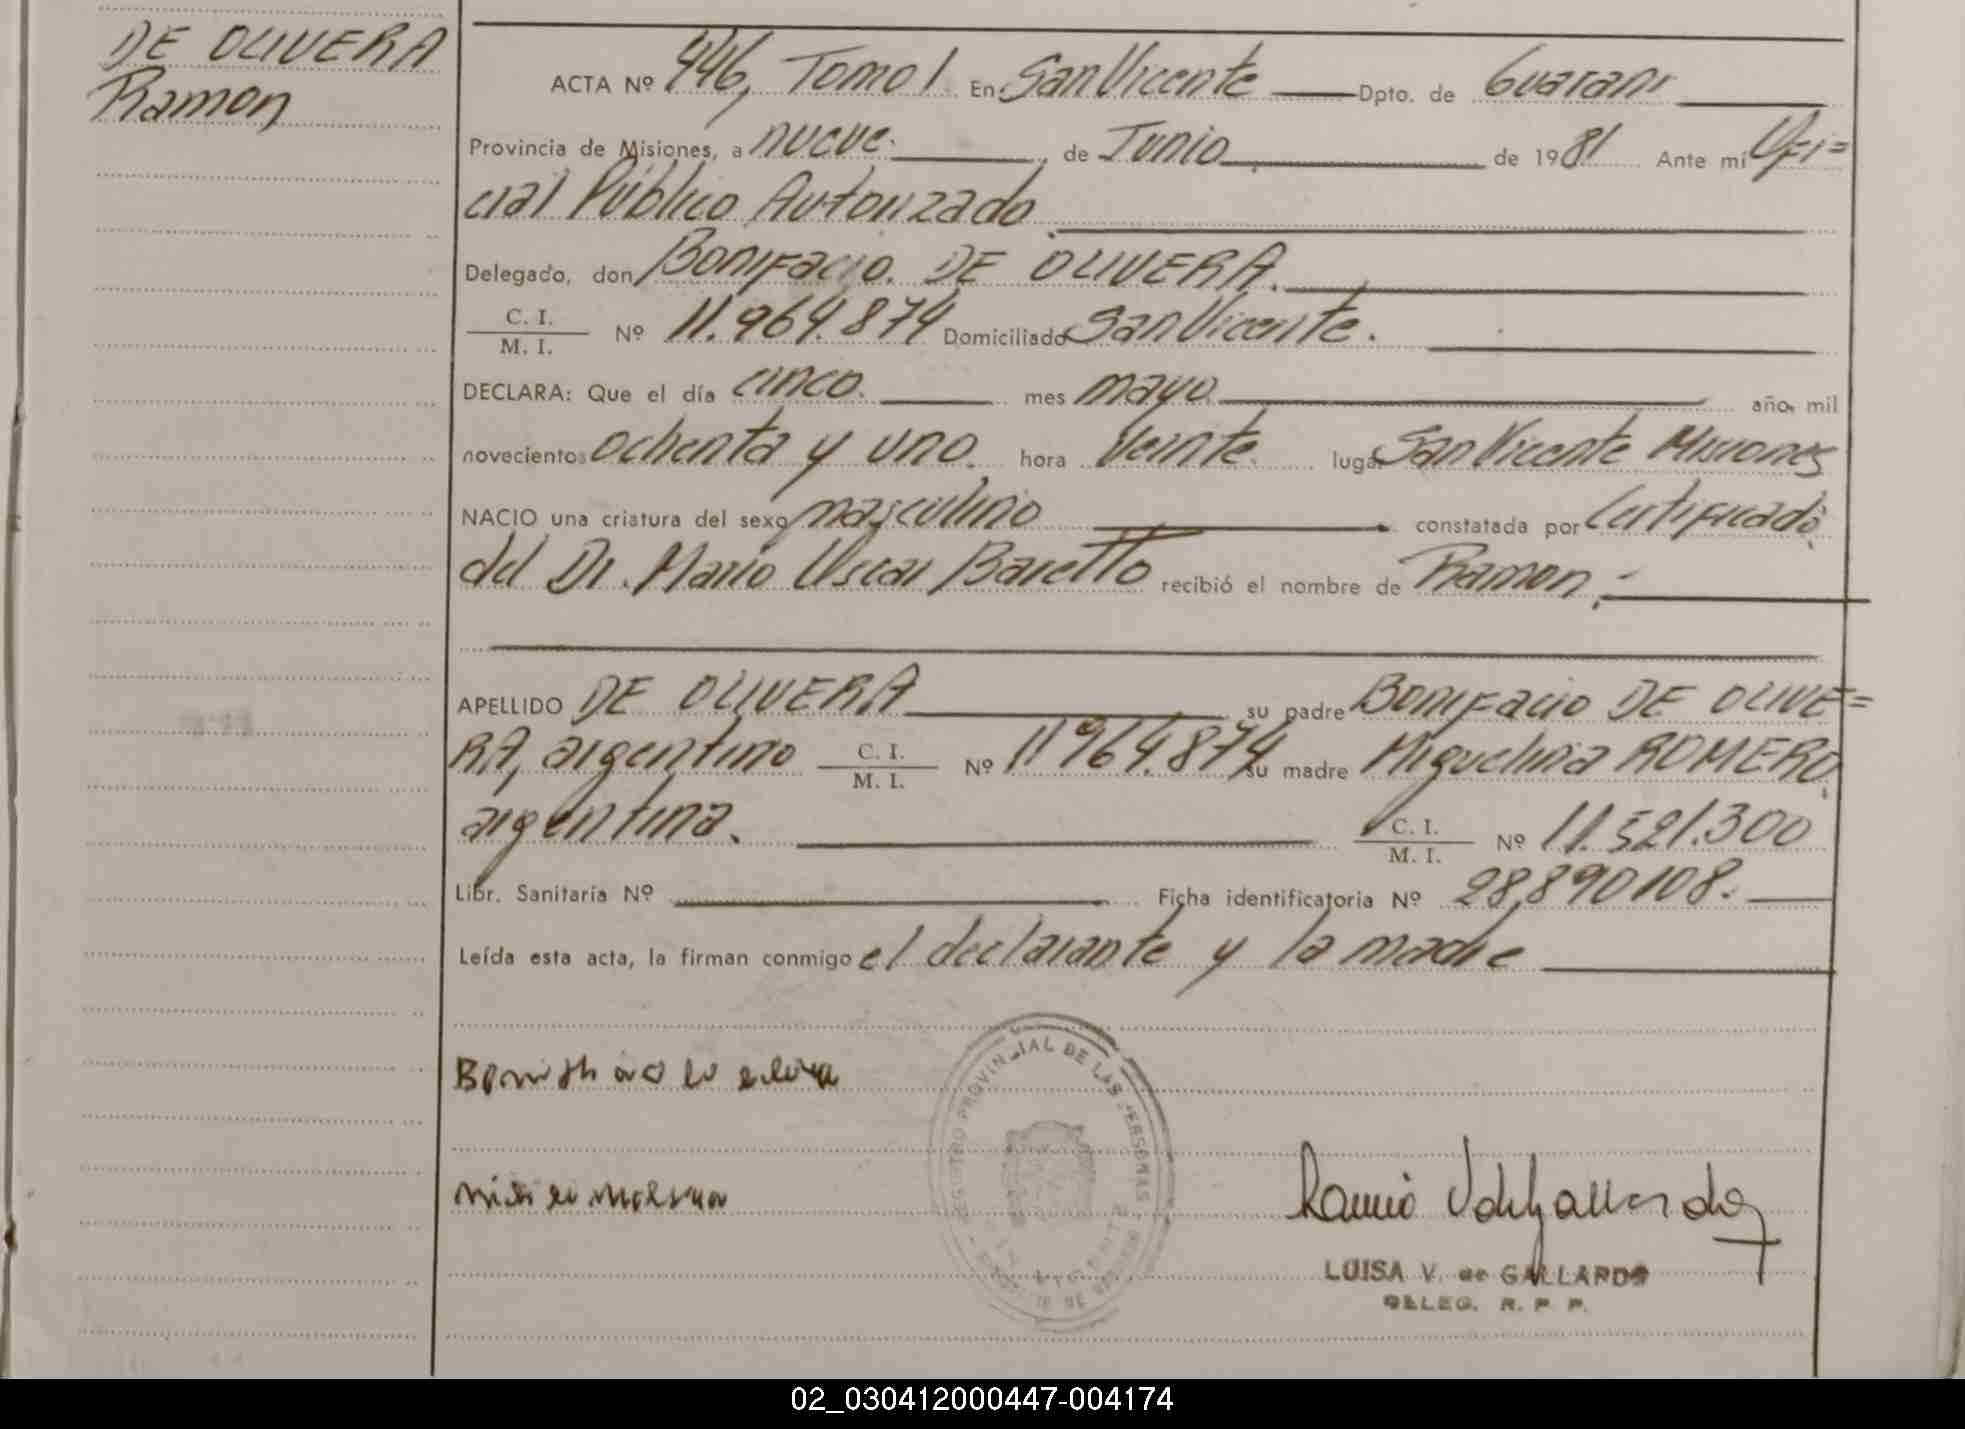 DE OLIVERA
Ramon
ACTA Nº 446, Tomo I En San Vicente Dpto. de Guarani
Provincia de Misiones, a nueve. de Junio de 1981 Ante mi Ofi=
cial Público Autorizado.
Delegado, don Bonifacio DE OLIVERA.
C. I.
M. I. Nº 11.964.874 Domiciliado San Vicente.
DECLARA: Que el día cinco. mes mayo año, mil
novecientos ochenta y uno. hora veinte. lugar San Vicente Misiones
NACIO una criatura del sexo masculino constatada por Certificado
del Dr. Mario Oscar Baretto recibió el nombre de Ramon.-
APELLIDO DE OLIVERA su padre Bonifacio DE OLIVE=
RA, argentino C. I.
M. I. Nº 11964.874 su madre Miguelina ROMERO,
argentina. C. I.
M. I. Nº 11.521.300
Libr. Sanitaria Nº Ficha identificatoria Nº 28.890108.
Leída esta acta, la firman conmigo el declarante y la madre
REGISTRO PROVINCIAL DE LAS PERSONAS
LUISA V. de GALLARDO
DELEG. R. P. P.
02_030412000447-004174